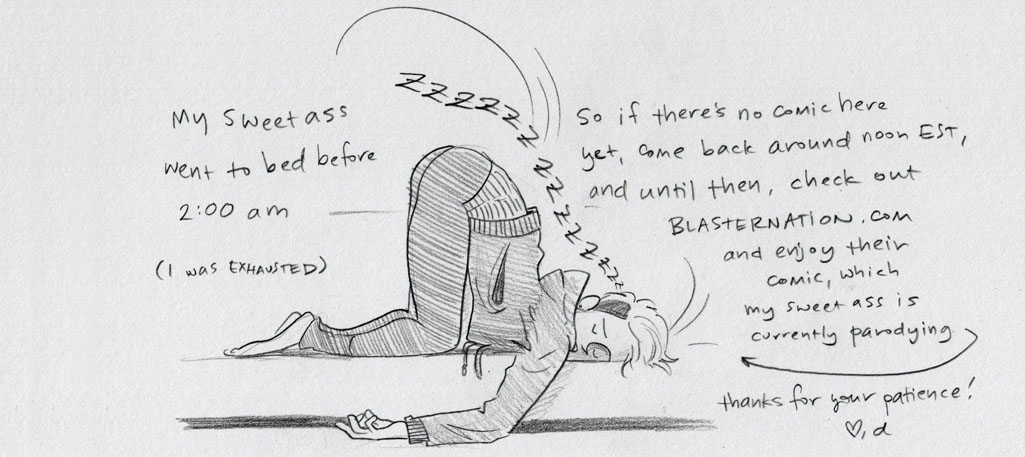 My sweet ass
went to bed before
2:00 am
(I was EXHAUSTED)
ZZZZZZZZZZZZZZZZZ
So if there's no comic here
yet, come back around noon EST,
and until then, check out
BLASTERNATION.COM
and enjoy their
comic, which
my sweet ass is
currently parodying
thanks for your patience!
♡, d